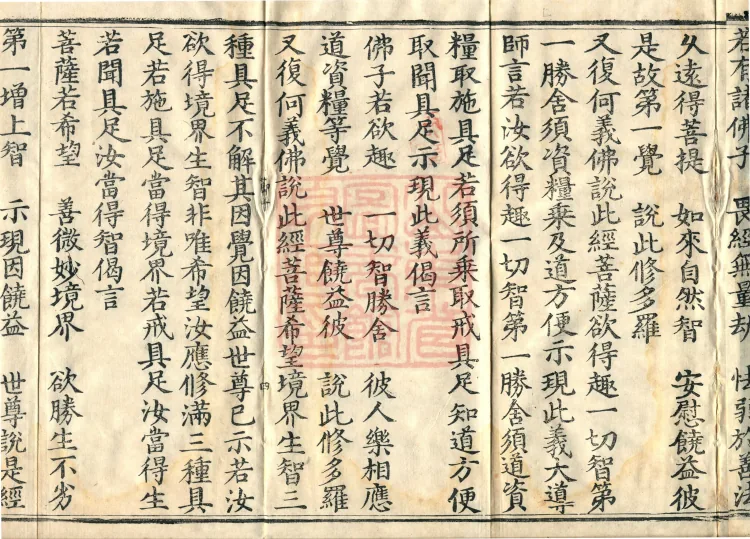 若有諸佛子 畏經無量劫 怯弱於菩
久遠得菩提 如來自然智 安慰饒益彼
是故第一覺 說此修多羅
又復何義佛說此經菩薩欲得趣一切智第
一勝舍須資糧乗及道方便示現此義大導
師言若汝欲得趣一切智第一勝舍須道資
糧取施具足若須所乗取戒具足知道方便
取聞具足示現此義偈言
佛子若欲趣 一切智勝舍 彼人樂相應
道資糧等覺 世尊饒益彼 說此修多羅
又復何義佛說此經菩薩希望境界生智三
種具足不解其因覺因饒益世尊已示若汝
欲得境界生智非唯希望汝應修滿三種具
足若施具足當得境界若戒具足汝當得生
若聞具足汝當得智偈言
菩薩若希望 善微妙境界 欲勝生不劣
第一增上智 示現因饒益 世尊說是經
四